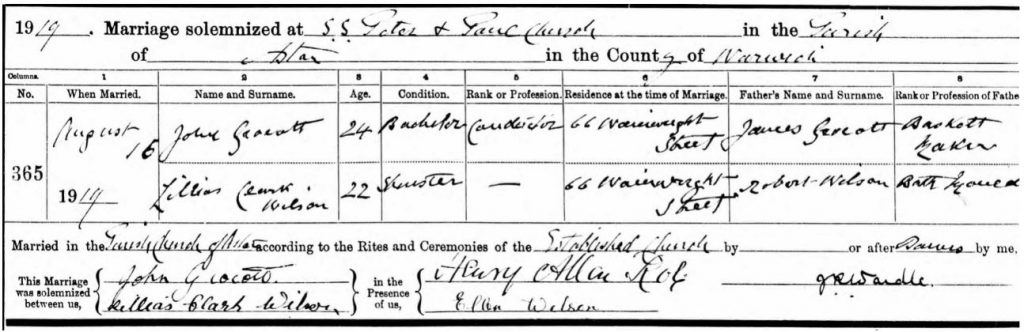 1919. Marriage solemnized at S.S. Peter & Paul Church in the Parish
of Aston in the County of Warwick
Columns. 1 2 3 4 5 6 7 8
No. When Married. Name and Surname. Age. Condition. Rank or Profession. Residence at the time of Marriage. Father's Name and Surname. Rank or Profession of Fathe
August 16 John Grocott 24 Bachelor Conductor 66 Wainwright Street James Grocott Baskett Maker
365
1919 Lillias Clark Wilson 22 Spinster — 66 Wainwright Street Robert Wilson Bath
Married in the Parish Church of Aston according to the Rites and Ceremonies of the Established Church by or after Banns by me,
This Marriage was solemnized between us, John Grocott in the Presence of us, Henry Allen
Lillias Clark Wilson Ellen Wilson